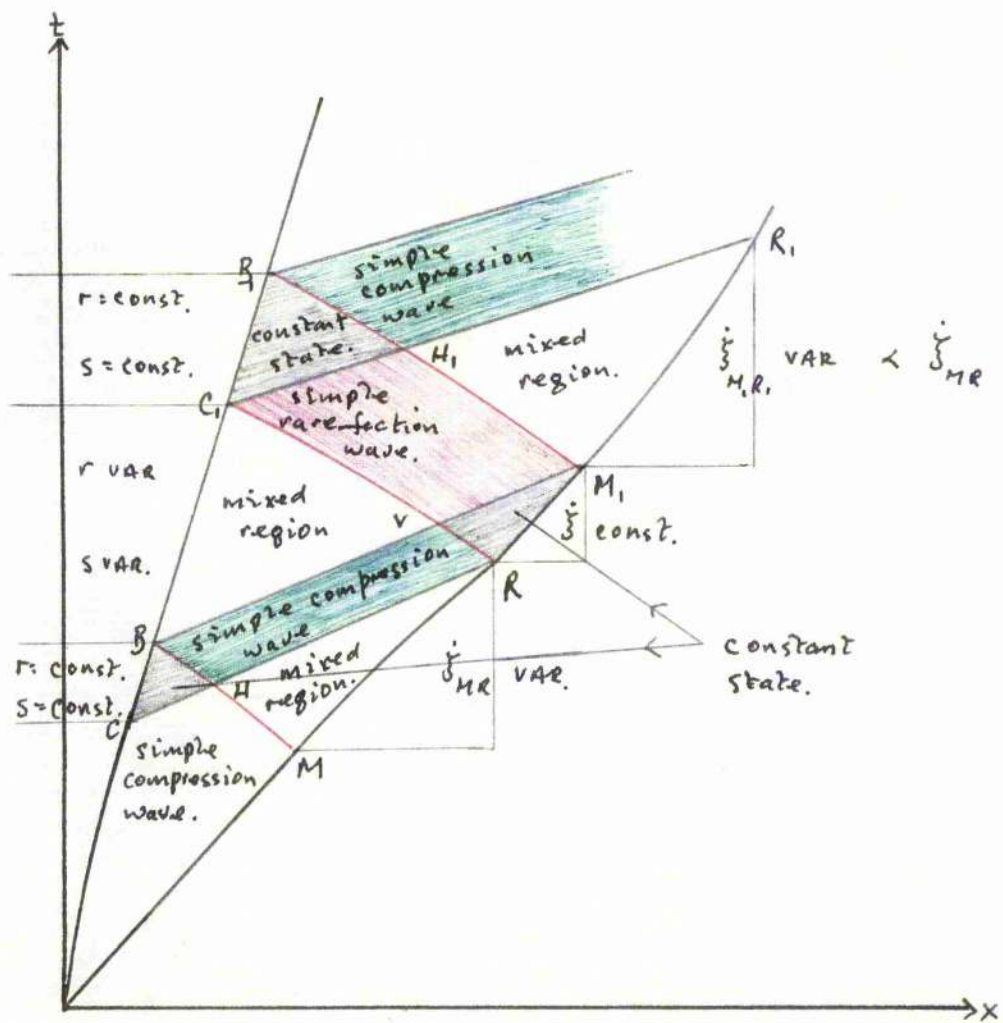 t
R₁
B₁
simple
compression
wave
r = const.
constant
state.
S = const.
H₁
mixed
region.
ξ̇ M₁R₁ VAR < ξ̇ MR
C₁
simple
rarefaction
wave.
r VAR
M₁
mixed
region
V
ξ̇ const.
S VAR.
R
simple compression
wave
B
r = const.
mixed
region.
ξ̇ MR VAR.
constant
state.
H
S = const.
C
simple
compression
wave.
M
x